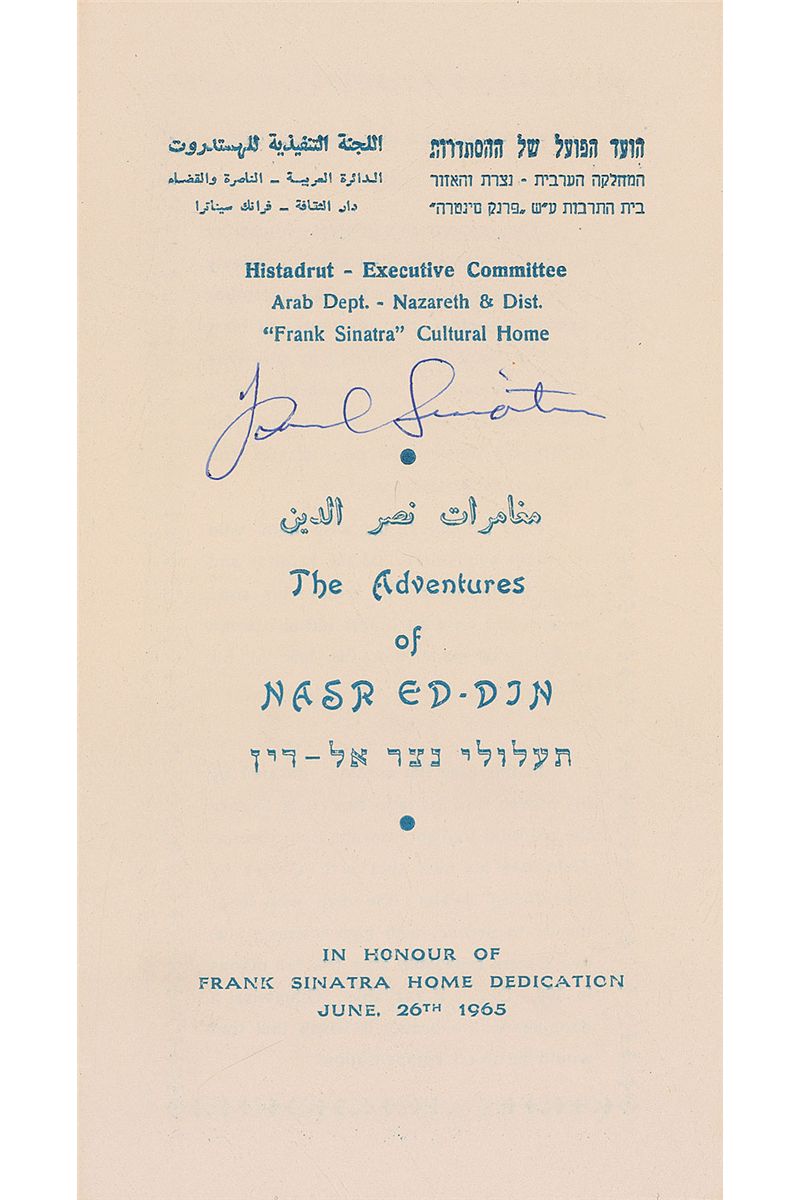 הועד הפועל של ההסתדרות
המחלקה הערבית - נצרת והאזור
בית התרבות ע״ש „פרנק סינטרה״
اللجنة التنفيذية للهستدروت
الدائرة العربية – الناصرة والقضاء
دار الثقافة – فرانك سيناترا
Histadrut - Executive Committee
Arab Dept. - Nazareth & Dist.
“Frank Sinatra” Cultural Home
Frank Sinatra
مغامرات نصر الدين
The Adventures
of
NASR ED-DIN
תעלולי נצר אל-דין
IN HONOUR OF
FRANK SINATRA HOME DEDICATION
JUNE, 26TH 1965